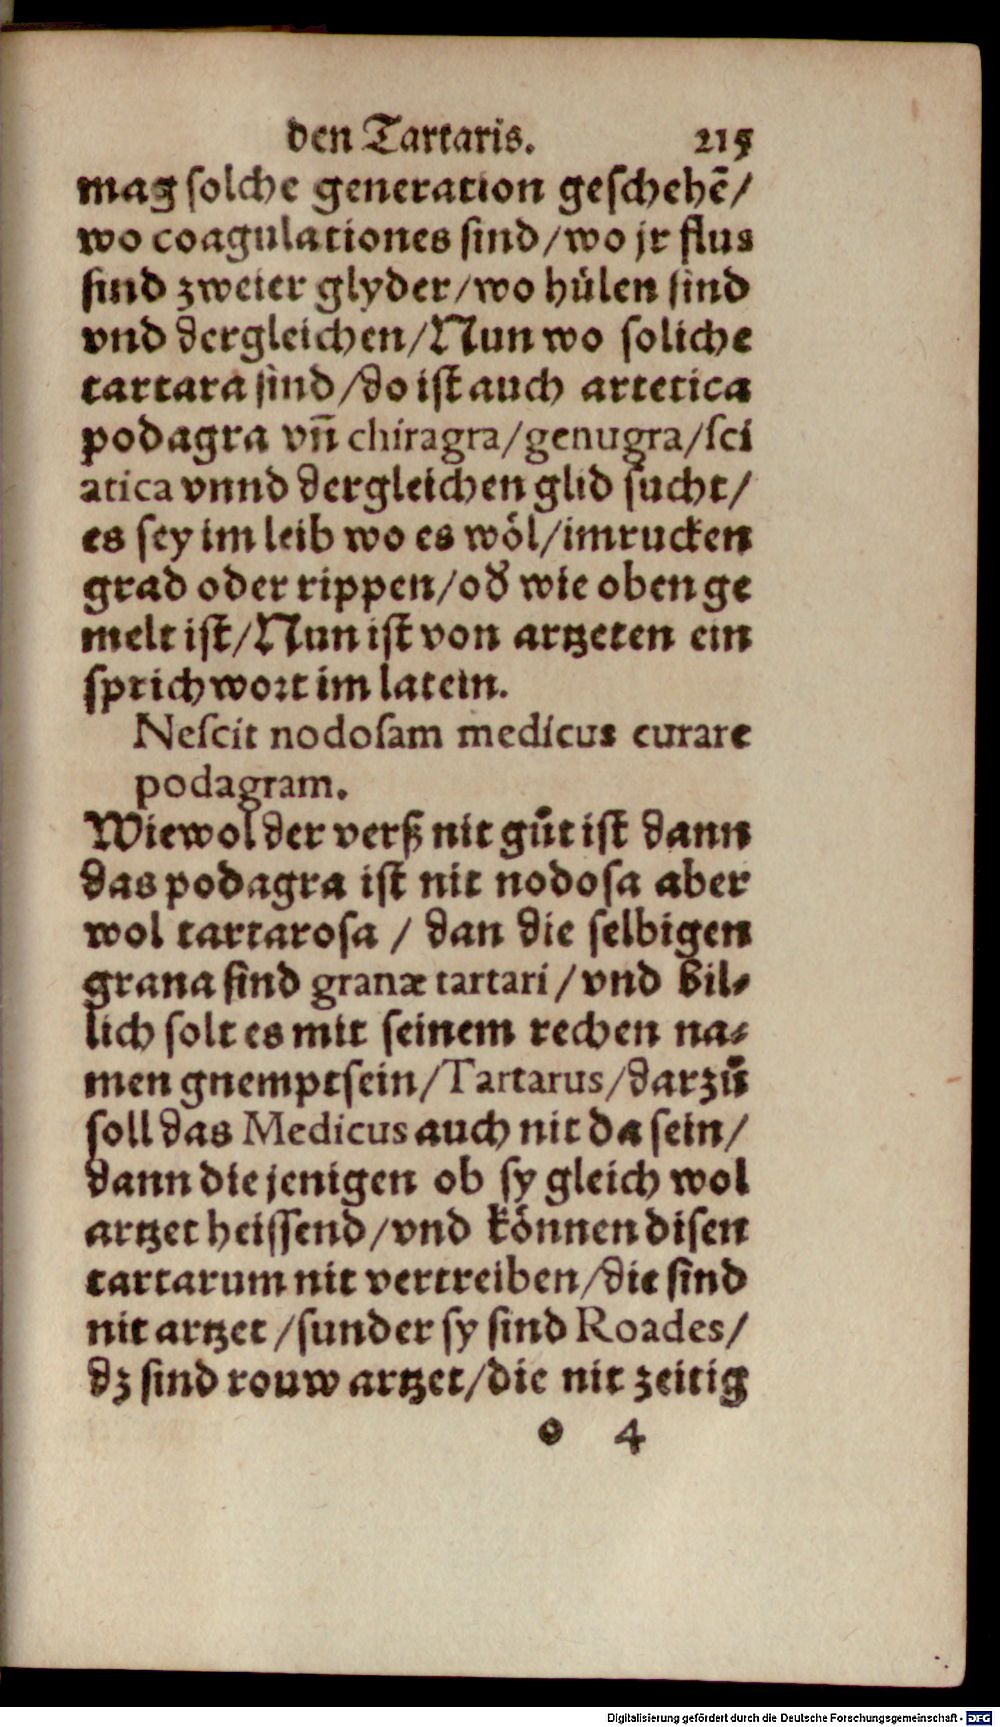 den Tartaris. 215
mag solche generation geschehē/
wo coagulationes sind/wo jr flus
sind zweier glyder/wo hülen sind
vnd dergleichen/Nun wo soliche
tartara sind/do ist auch artetica
podagra vñ chiragra/genugra/sci
atica vnnd dergleichen glid sucht/
es sey im leib wo es wöl/im rucken
grad oder rippen/od' wie oben ge
melt ist/Nun ist von artzeten ein
sprichwort im latein.
Nescit nodosam medicus curare
podagram.
Wiewol der verß nit gůt ist dann
das podagra ist nit nodosa aber
wol tartarosa / dan die selbigen
grana sind granæ tartari / vnd bil-
lich solt es mit seinem rechen na-
men gnempt sein/Tartarus/darzů
soll das Medicus auch nit da sein/
dann die jenigen ob sy gleich wol
artzet heissend/vnd können disen
tartarum nit vertreiben/die sind
nit artzet /sunder sy sind Roades/
dz sind rouw artzet/die nit zeitig
o 4
Digitalisierung gefördert durch die Deutsche Forschungsgemeinschaft - DFG